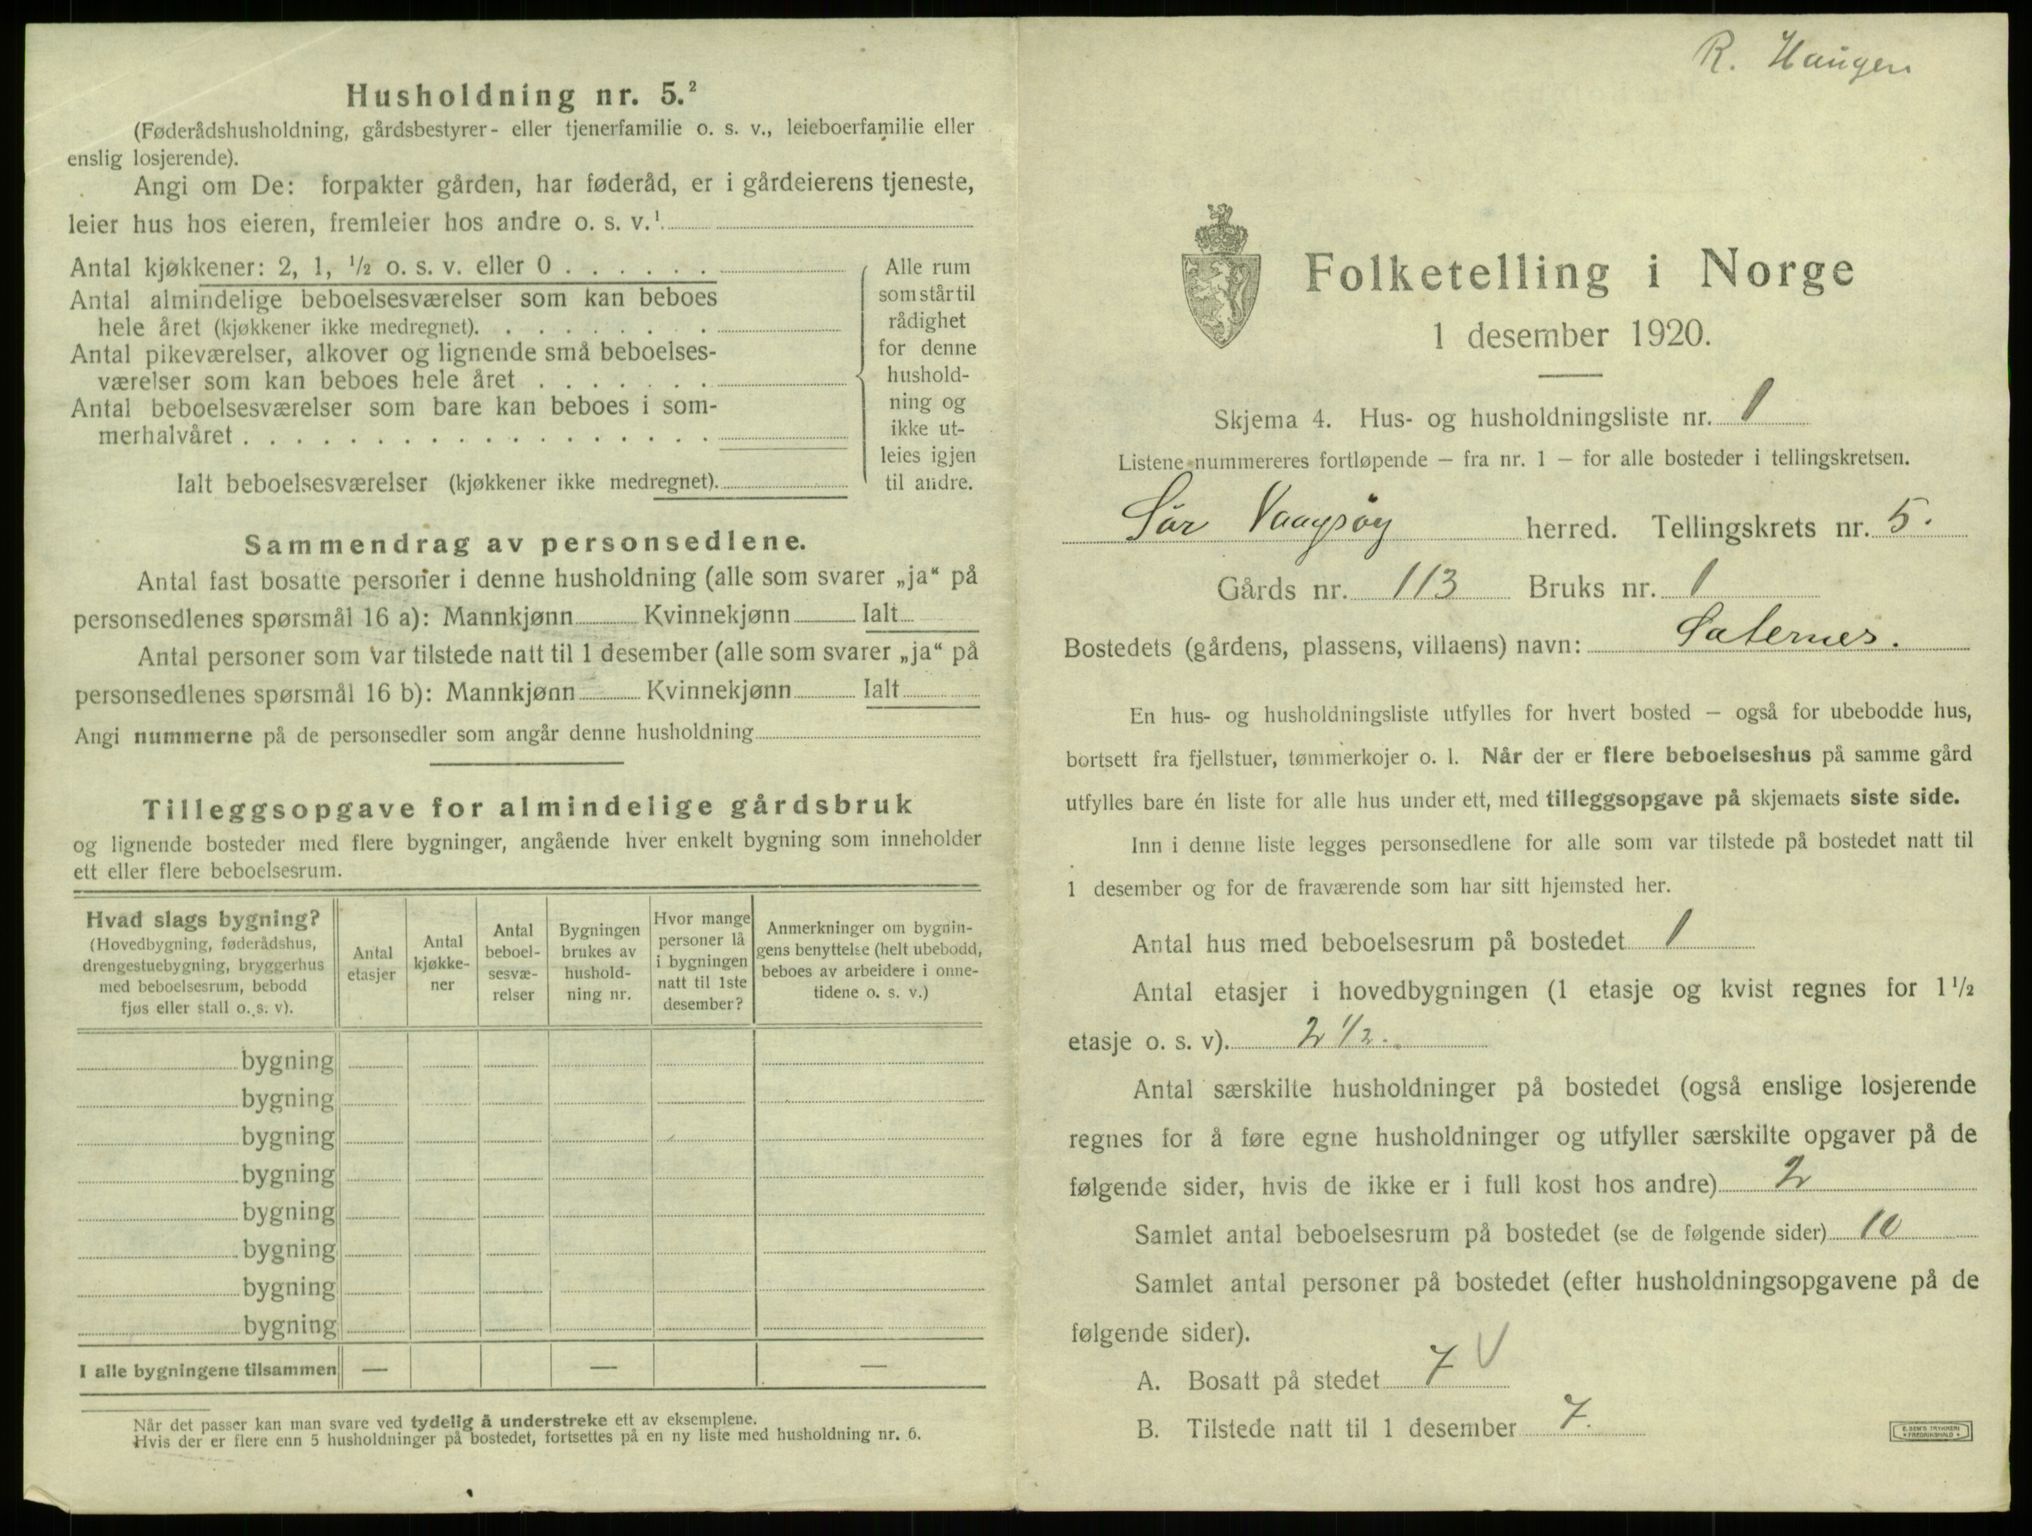 Husholdning nr. 5.²
(Føderådshusholdning, gårdsbestyrer- eller tjenerfamilie o. s. v., leieboerfamilie eller
enslig losjerende).
Angi om De: forpakter gården, har føderåd, er i gårdeierens tjeneste,
leier hus hos eieren, fremleier hos andre o. s. v.¹
Antal kjøkkener: 2, 1, ½ o. s. v. eller 0 . . . . . .
Antal almindelige beboelsesværelser som kan beboes
hele året (kjøkkener ikke medregnet). . . . . . . . .
Antal pikeværelser, alkover og lignende små beboelses-
værelser som kan beboes hele året . . . . . . .
Antal beboelsesværelser som bare kan beboes i som-
merhalvåret . . . . . . . . . . . . . . . . . .
Ialt beboelsesværelser (kjøkkener ikke medregnet).
Alle rum
som står til
rådighet
for denne
hushold-
ning og
ikke ut-
leies igjen
til andre.
Sammendrag av personsedlene.
Antal fast bosatte personer i denne husholdning (alle som svarer „ja“ på
personsedlenes spørsmål 16 a): Mannkjønn Kvinnekjønn Ialt
Antal personer som var tilstede natt til 1 desember (alle som svarer „ja“ på
personsedlenes spørsmål 16 b): Mannkjønn Kvinnekjønn Ialt
Angi nummerne på de personsedler som angår denne husholdning
Tilleggsopgave for almindelige gårdsbruk
og lignende bosteder med flere bygninger, angående hver enkelt bygning som inneholder
ett eller flere beboelsesrum.
Hvad slags bygning?
(Hovedbygning, føderådshus,
drengestuebygning, bryggerhus
med beboelsesrum, bebodd
fjøs eller stall o. s. v).
Antal
etasjer
Antal
kjøkke-
ner
Antal
beboel-
sesvæ-
relser
Bygningen
brukes av
hushold-
ning nr.
Hvor mange
personer lå
i bygningen
natt til 1ste
desember?
Anmerkninger om bygnin-
gens benyttelse (helt ubebodd,
beboes av arbeidere i onne-
tidene o. s. v.)
bygning
bygning
bygning
bygning
bygning
bygning
bygning
bygning
I alle bygningene tilsammen — — —
Når det passer kan man svare ved tydelig å understreke ett av eksemplene.
Hvis der er flere enn 5 husholdninger på bostedet, fortsettes på en ny liste med husholdning nr. 6.
R. Haugen
Folketelling i Norge
1 desember 1920.
Skjema 4. Hus- og husholdningsliste nr. 1
Listene nummereres fortløpende – fra nr. 1 – for alle bosteder i tellingskretsen.
Sør Vaagsøy herred. Tellingskrets nr. 5.
Gårds nr. 113 Bruks nr. 1
Bostedets (gårdens, plassens, villaens) navn: Saternes.
En hus- og husholdningsliste utfylles for hvert bosted – også for ubebodde hus,
bortsett fra fjellstuer, tømmerkojer o. l. Når der er flere beboelseshus på samme gård
utfylles bare én liste for alle hus under ett, med tilleggsopgave på skjemaets siste side.
Inn i denne liste legges personsedlene for alle som var tilstede på bostedet natt til
1 desember og for de fraværende som har sitt hjemsted her.
Antal hus med beboelsesrum på bostedet 1
Antal etasjer i hovedbygningen (1 etasje og kvist regnes for 1½
etasje o. s. v). 2 ½.
Antal særskilte husholdninger på bostedet (også enslige losjerende
regnes for å føre egne husholdninger og utfyller særskilte opgaver på de
følgende sider, hvis de ikke er i full kost hos andre) 2
Samlet antal beboelsesrum på bostedet (se de følgende sider) 10
Samlet antal personer på bostedet (efter husholdningsopgavene på de
følgende sider).
A. Bosatt på stedet 7 V
B. Tilstede natt til 1 desember 7.